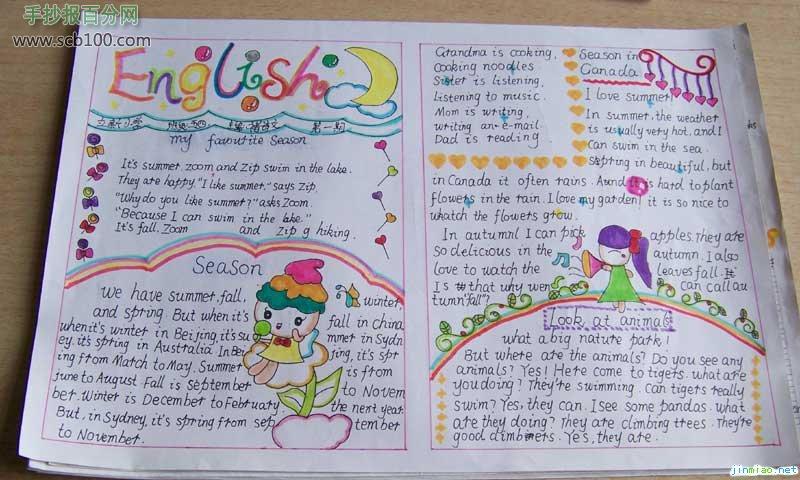 手抄报百分网
www.scb100.com
English
第一期
my favourite Season
It's summer, zoom and Zip swim in the lake.
They are happy. "I like summer," says Zip.
"Why do you like summer?" asks Zoom.
"Because I can swim in the lake."
It's fall. Zoom and Zip g hiking.
Season
We have summer, fall, winter,
and spring. But when it's fall in china
when it's winter in Beijing, it's summer in Sydn
ey. it's spring in Australia. In Beijing, it's spr
ing from Match to May. Summer is from
June to August. Fall is September to Novem
ber. Winter is December to February the next year.
But, in Sydney, it's spring from september
to November.
Grandma is cooking,
Cooking noodles
Sister is listening,
Listening to music.
Mom is writing,
writing an e-mail.
Dad is reading.
Season in
Canada
I love summer!
In summer, the weather
is usually very hot, and I
can swim in the sea.
Spring in beautiful, but
in Canada it often rains. Aound it is hard to plant
flowers in the rain. I love my garden! it is so nice to
whatch the flowers grow.
In autumnl I can pick apples. They are
so delicious in the autumn. I also
love to watch the leaves fall. It
Is that why wen can call au
tumn "fall"?
Look at animals
what a big nature park!
But where are the animals? Do you see any
animals? Yes! Here come to tigers. what are
you doing? They're swimming. Can tigers really
swim? Yes, they can. I see some pandas. what
are they doing? They are climbing trees. They're
good climbners. Yes, they are.
jinmiao.net